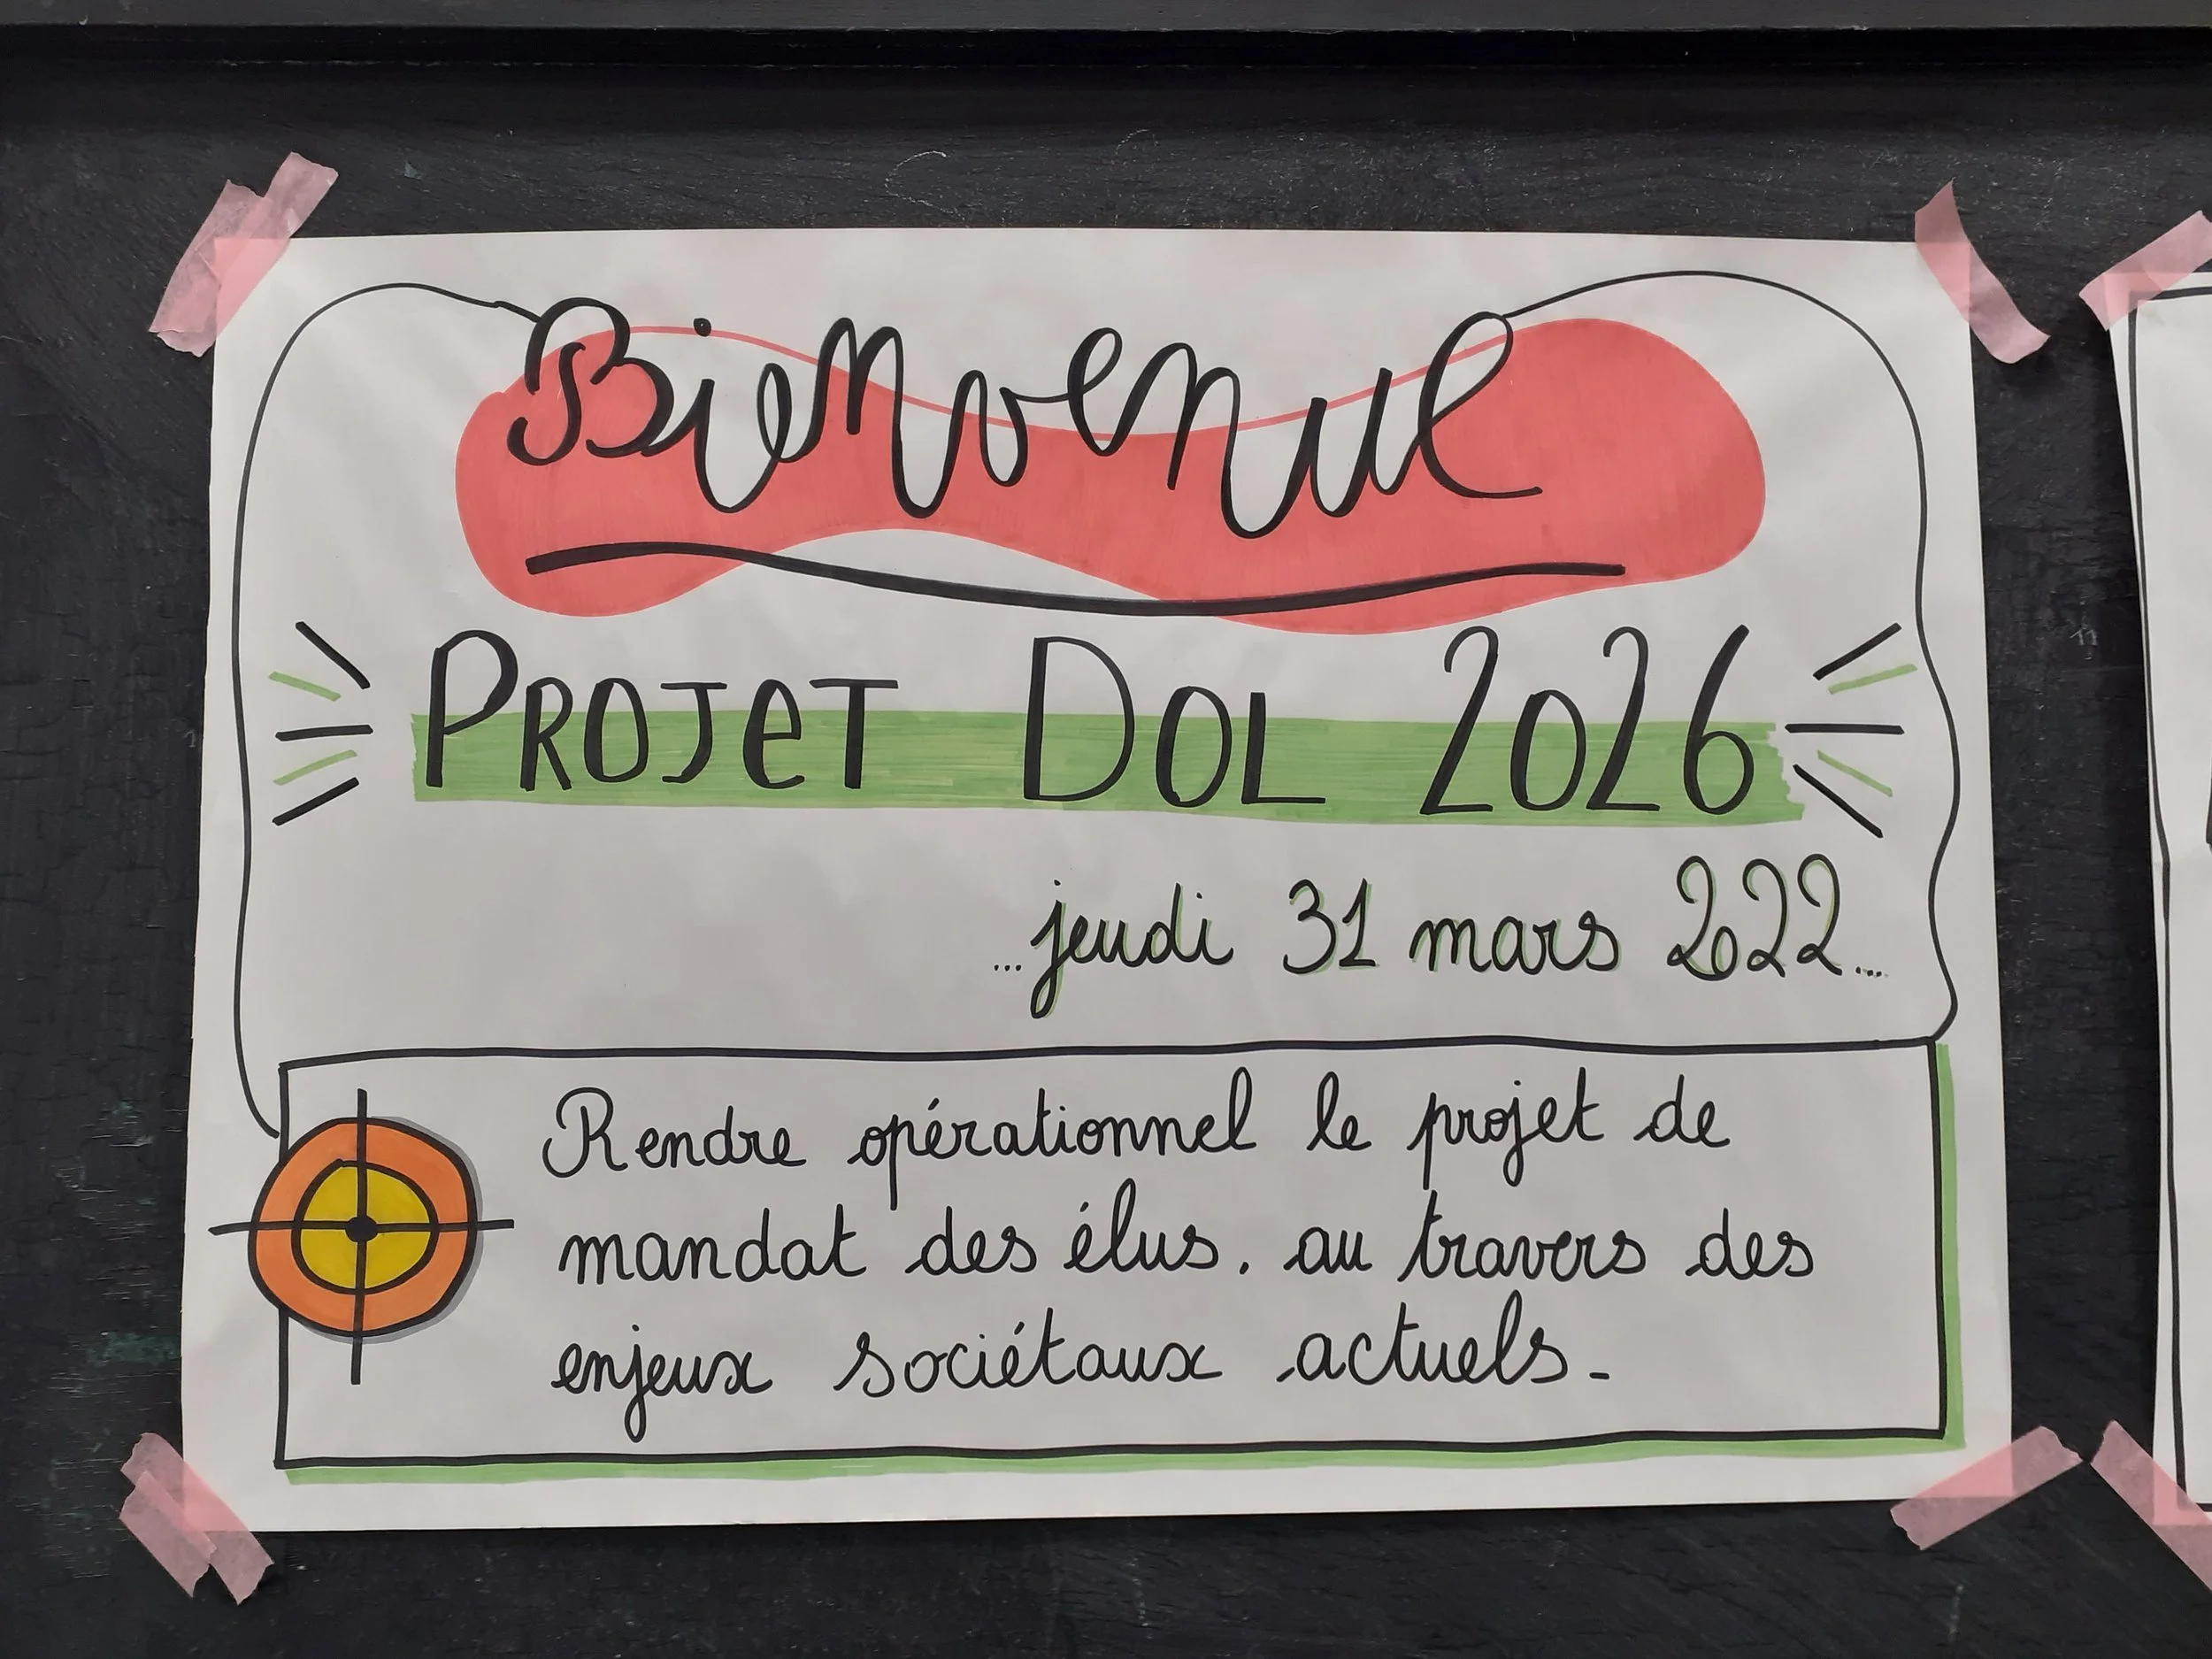 Bienvenue
PROJeT DOL 2026
...jeudi 31 mars 2022...
Rendre opérationnel le projet de
mandat des élus. au travers des
enjeux sociétaux actuels.